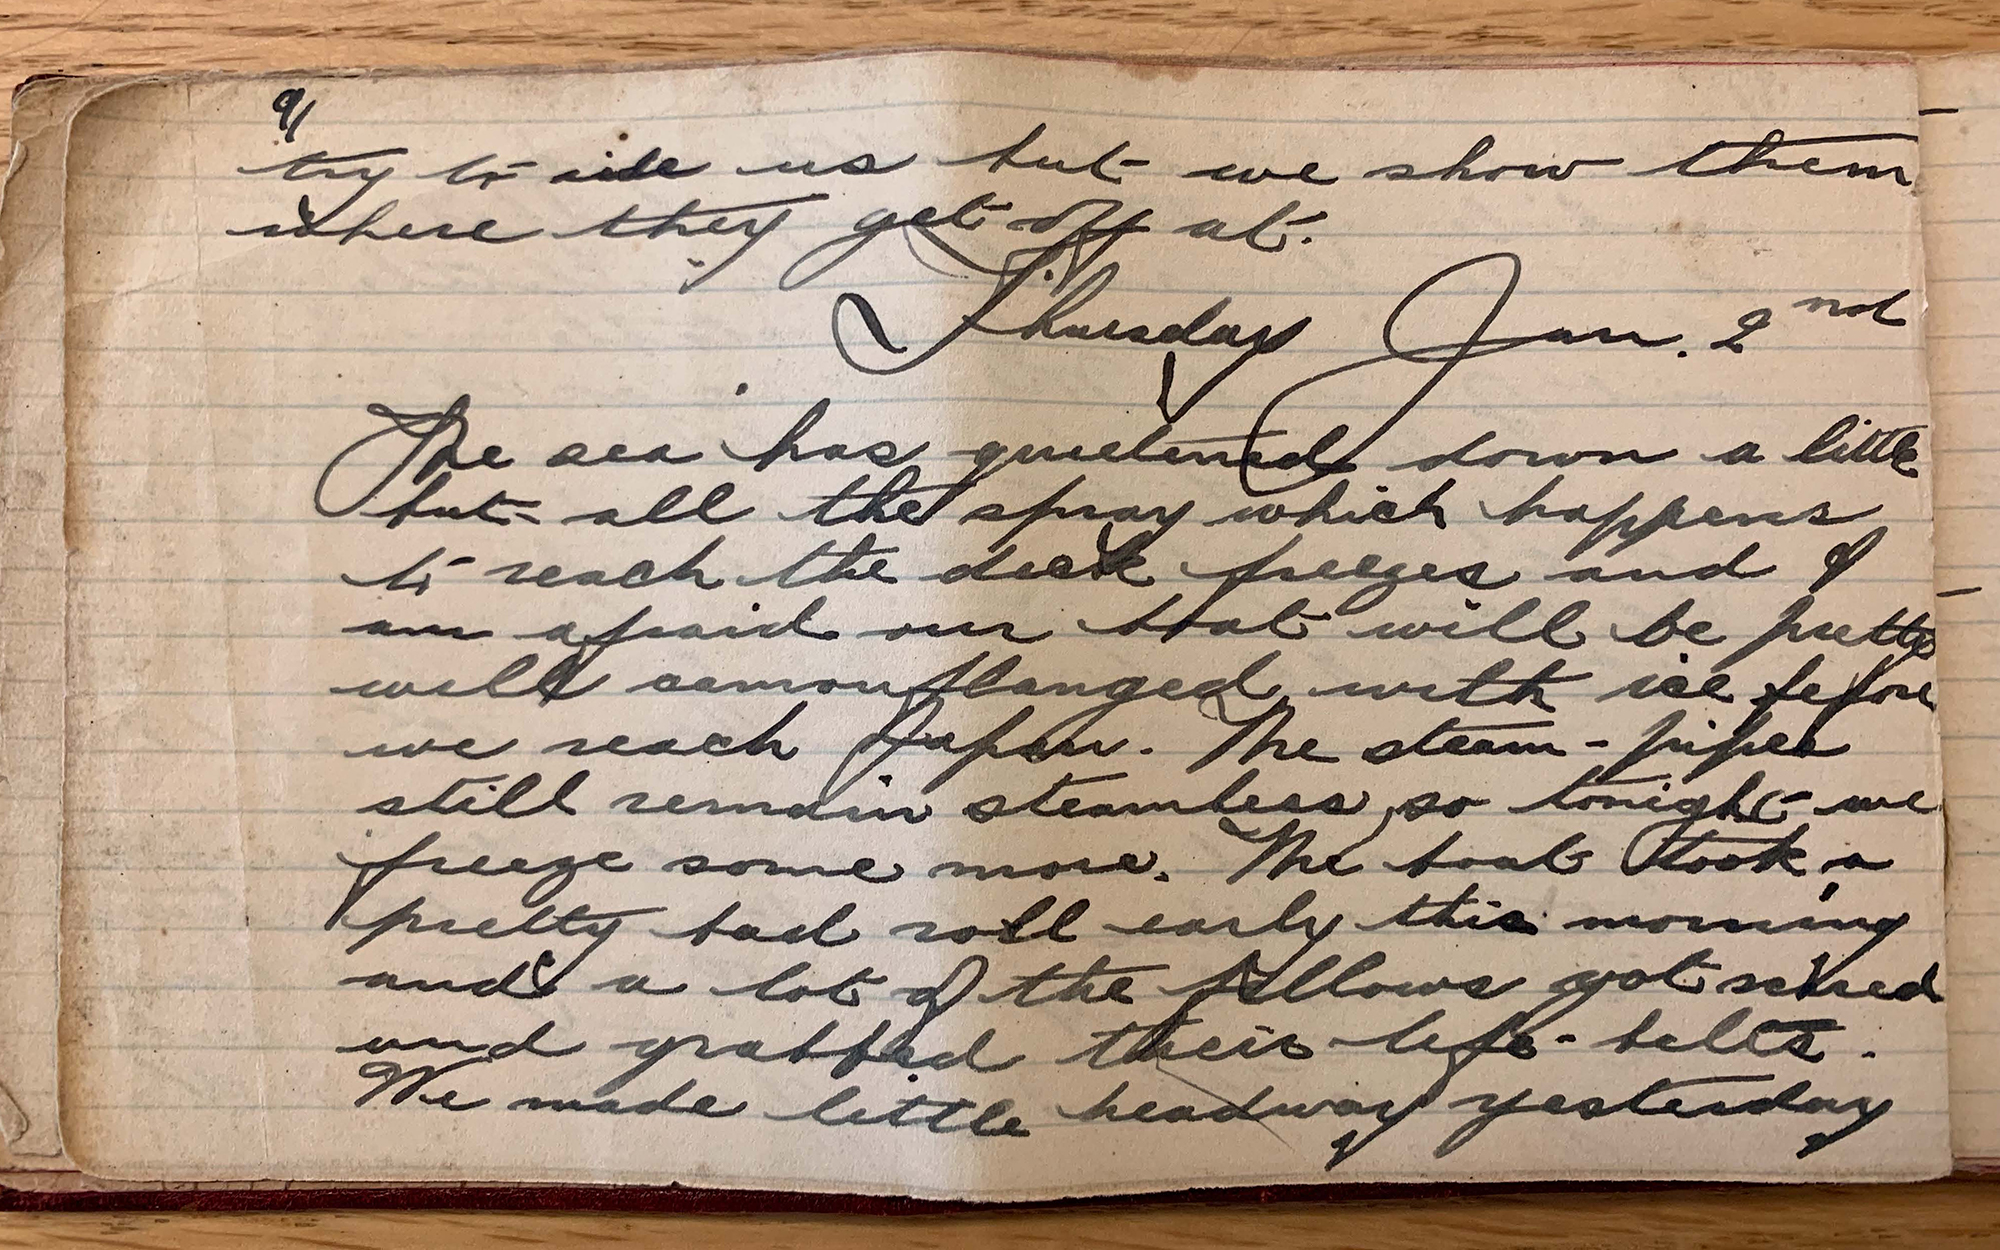 9/
try to ride us but we show them
where they get off at.
Thursday Jan. 2nd
The sea has quietened down a little
but all the spray which happens
to reach the deck freezes and I
am afraid our boat will be pretty
well camouflanged with ice before
we reach Japan. The steam-pipes
still remain steamless, so tonight we
freeze some more. The boat took a
pretty bad roll early this morning
and a lot of the fellows got scared
and grabbed their life-belts.
We made little headway yesterday